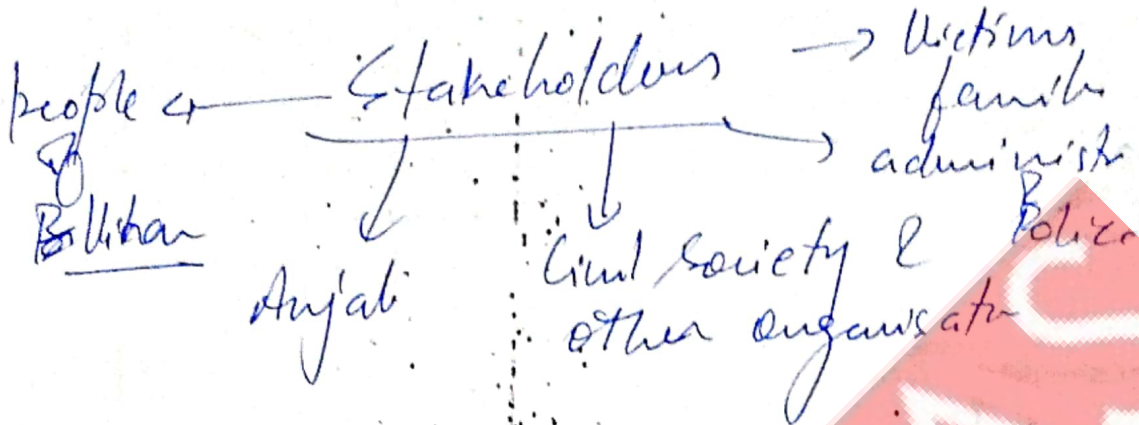 Stakeholders
people
of
→ Victims
family
administr
Police
Anjali
Civil Society &
other organisatn